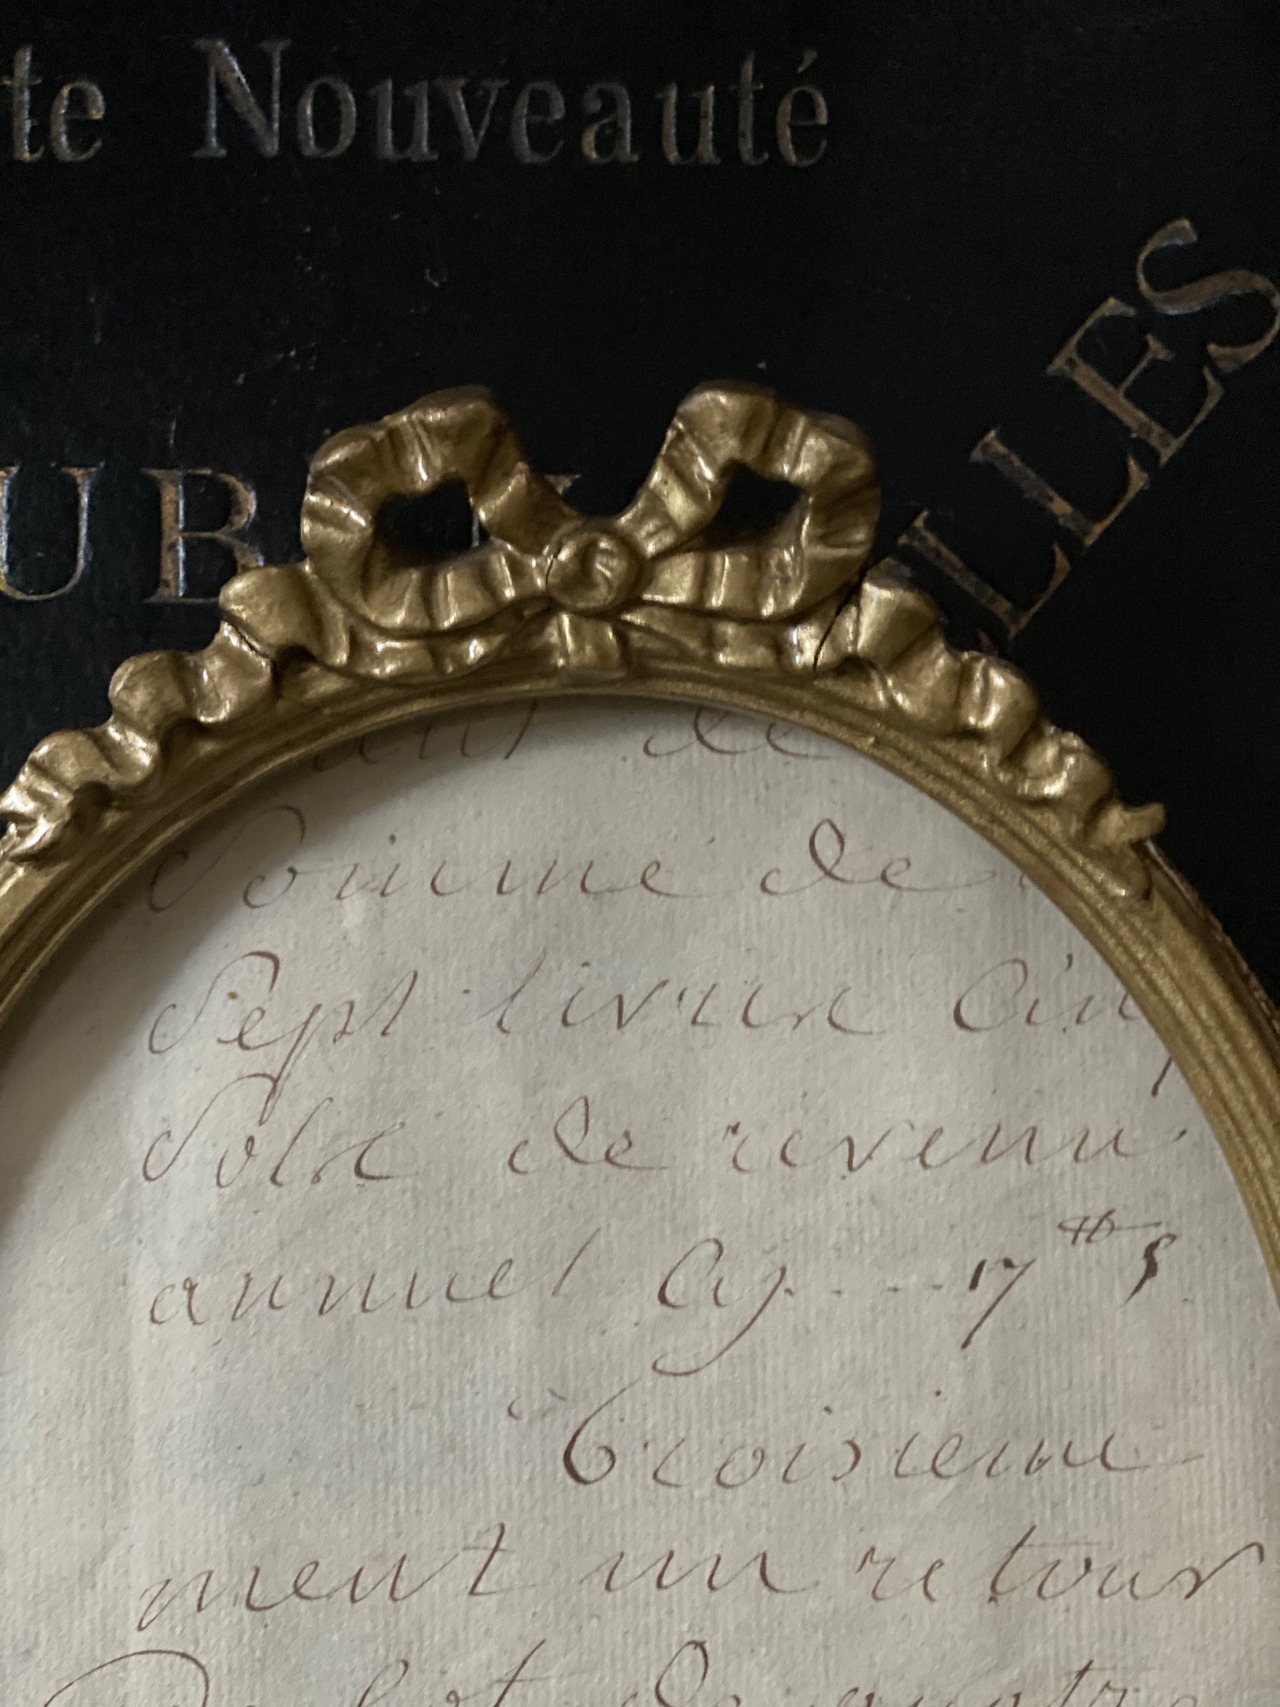 te Nouveauté
LLES
UB
de
Somme de
Sept livres Cinq
Sols de revenu
annuel Cy.....17 ₶ 5
Troisieme
ment un retour
de lot de quatre